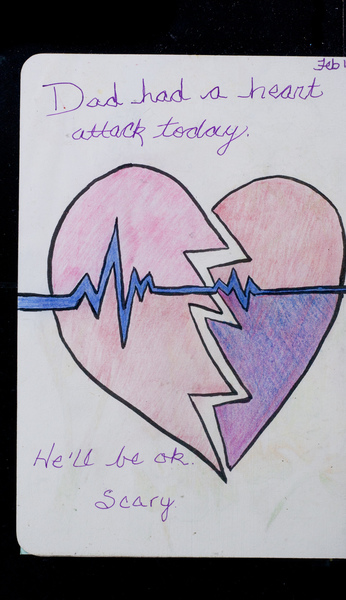 Feb 1
Dad had a heart
attack today.
He'll be ok.
Scary